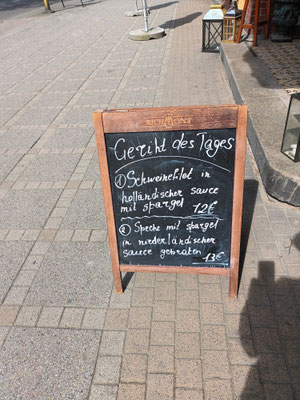 RICHMONT
Geriht des Tages
① Schweinefilet in
holländischer sauce
mit spargel 12€
② Speche mit spargel
in niederländischer
sauce gebraten 13€